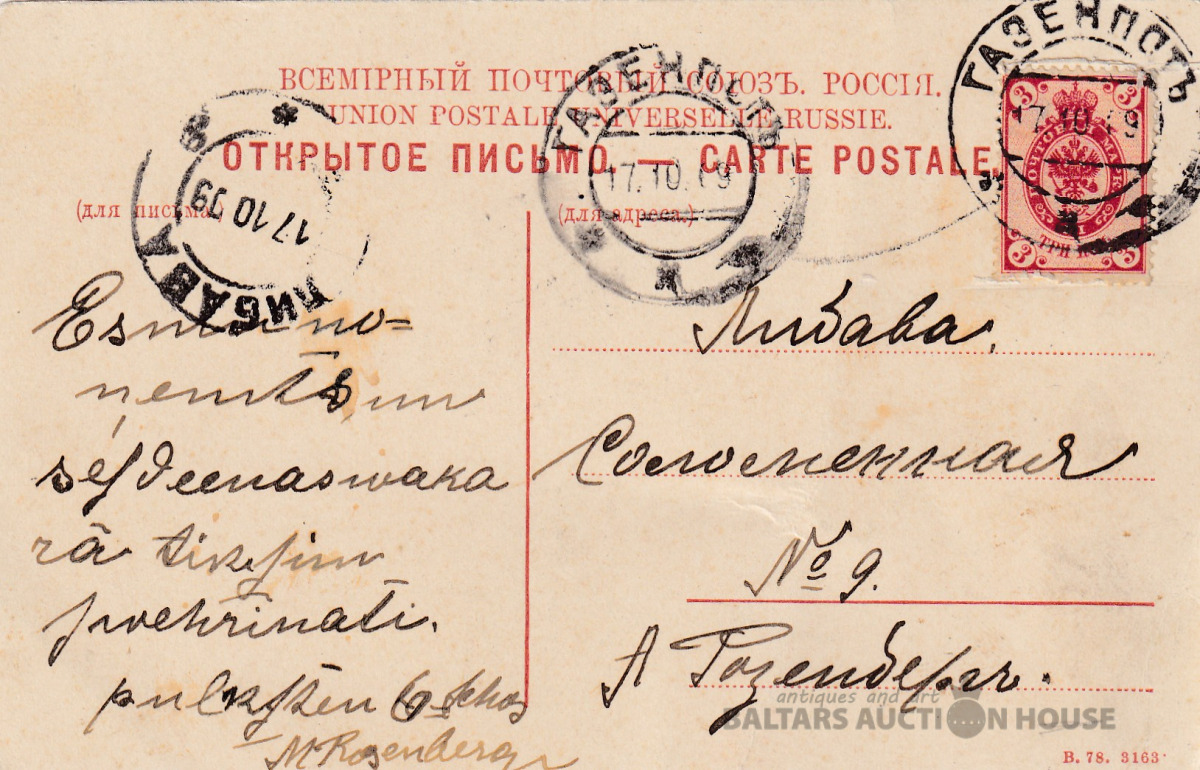 ВСЕМІРНЫЙ ПОЧТОВЫЙ СОЮЗЪ. РОССІЯ.
UNION POSTALE UNIVERSELLE RUSSIE.
ОТКРЫТОЕ ПИСЬМО — CARTE POSTALE.
(для письма)
(для адреса.)
ГАЗЕНПОТЪ
17.10.09
ГАЗЕНПОТЪ
17.10.09
ЛИБАВА
17 10 09
3 3
ТРИ
3 3
Либава.
Соломенная
№ 9.
А Розенбергъ.
Esmu no-
sēſdeenas waka
rā tikſim
ſwehtīnati.
pulkſten 6
M Rosenberg
antiques and art
BALTARS AUCTION HOUSE
B. 78. 3163